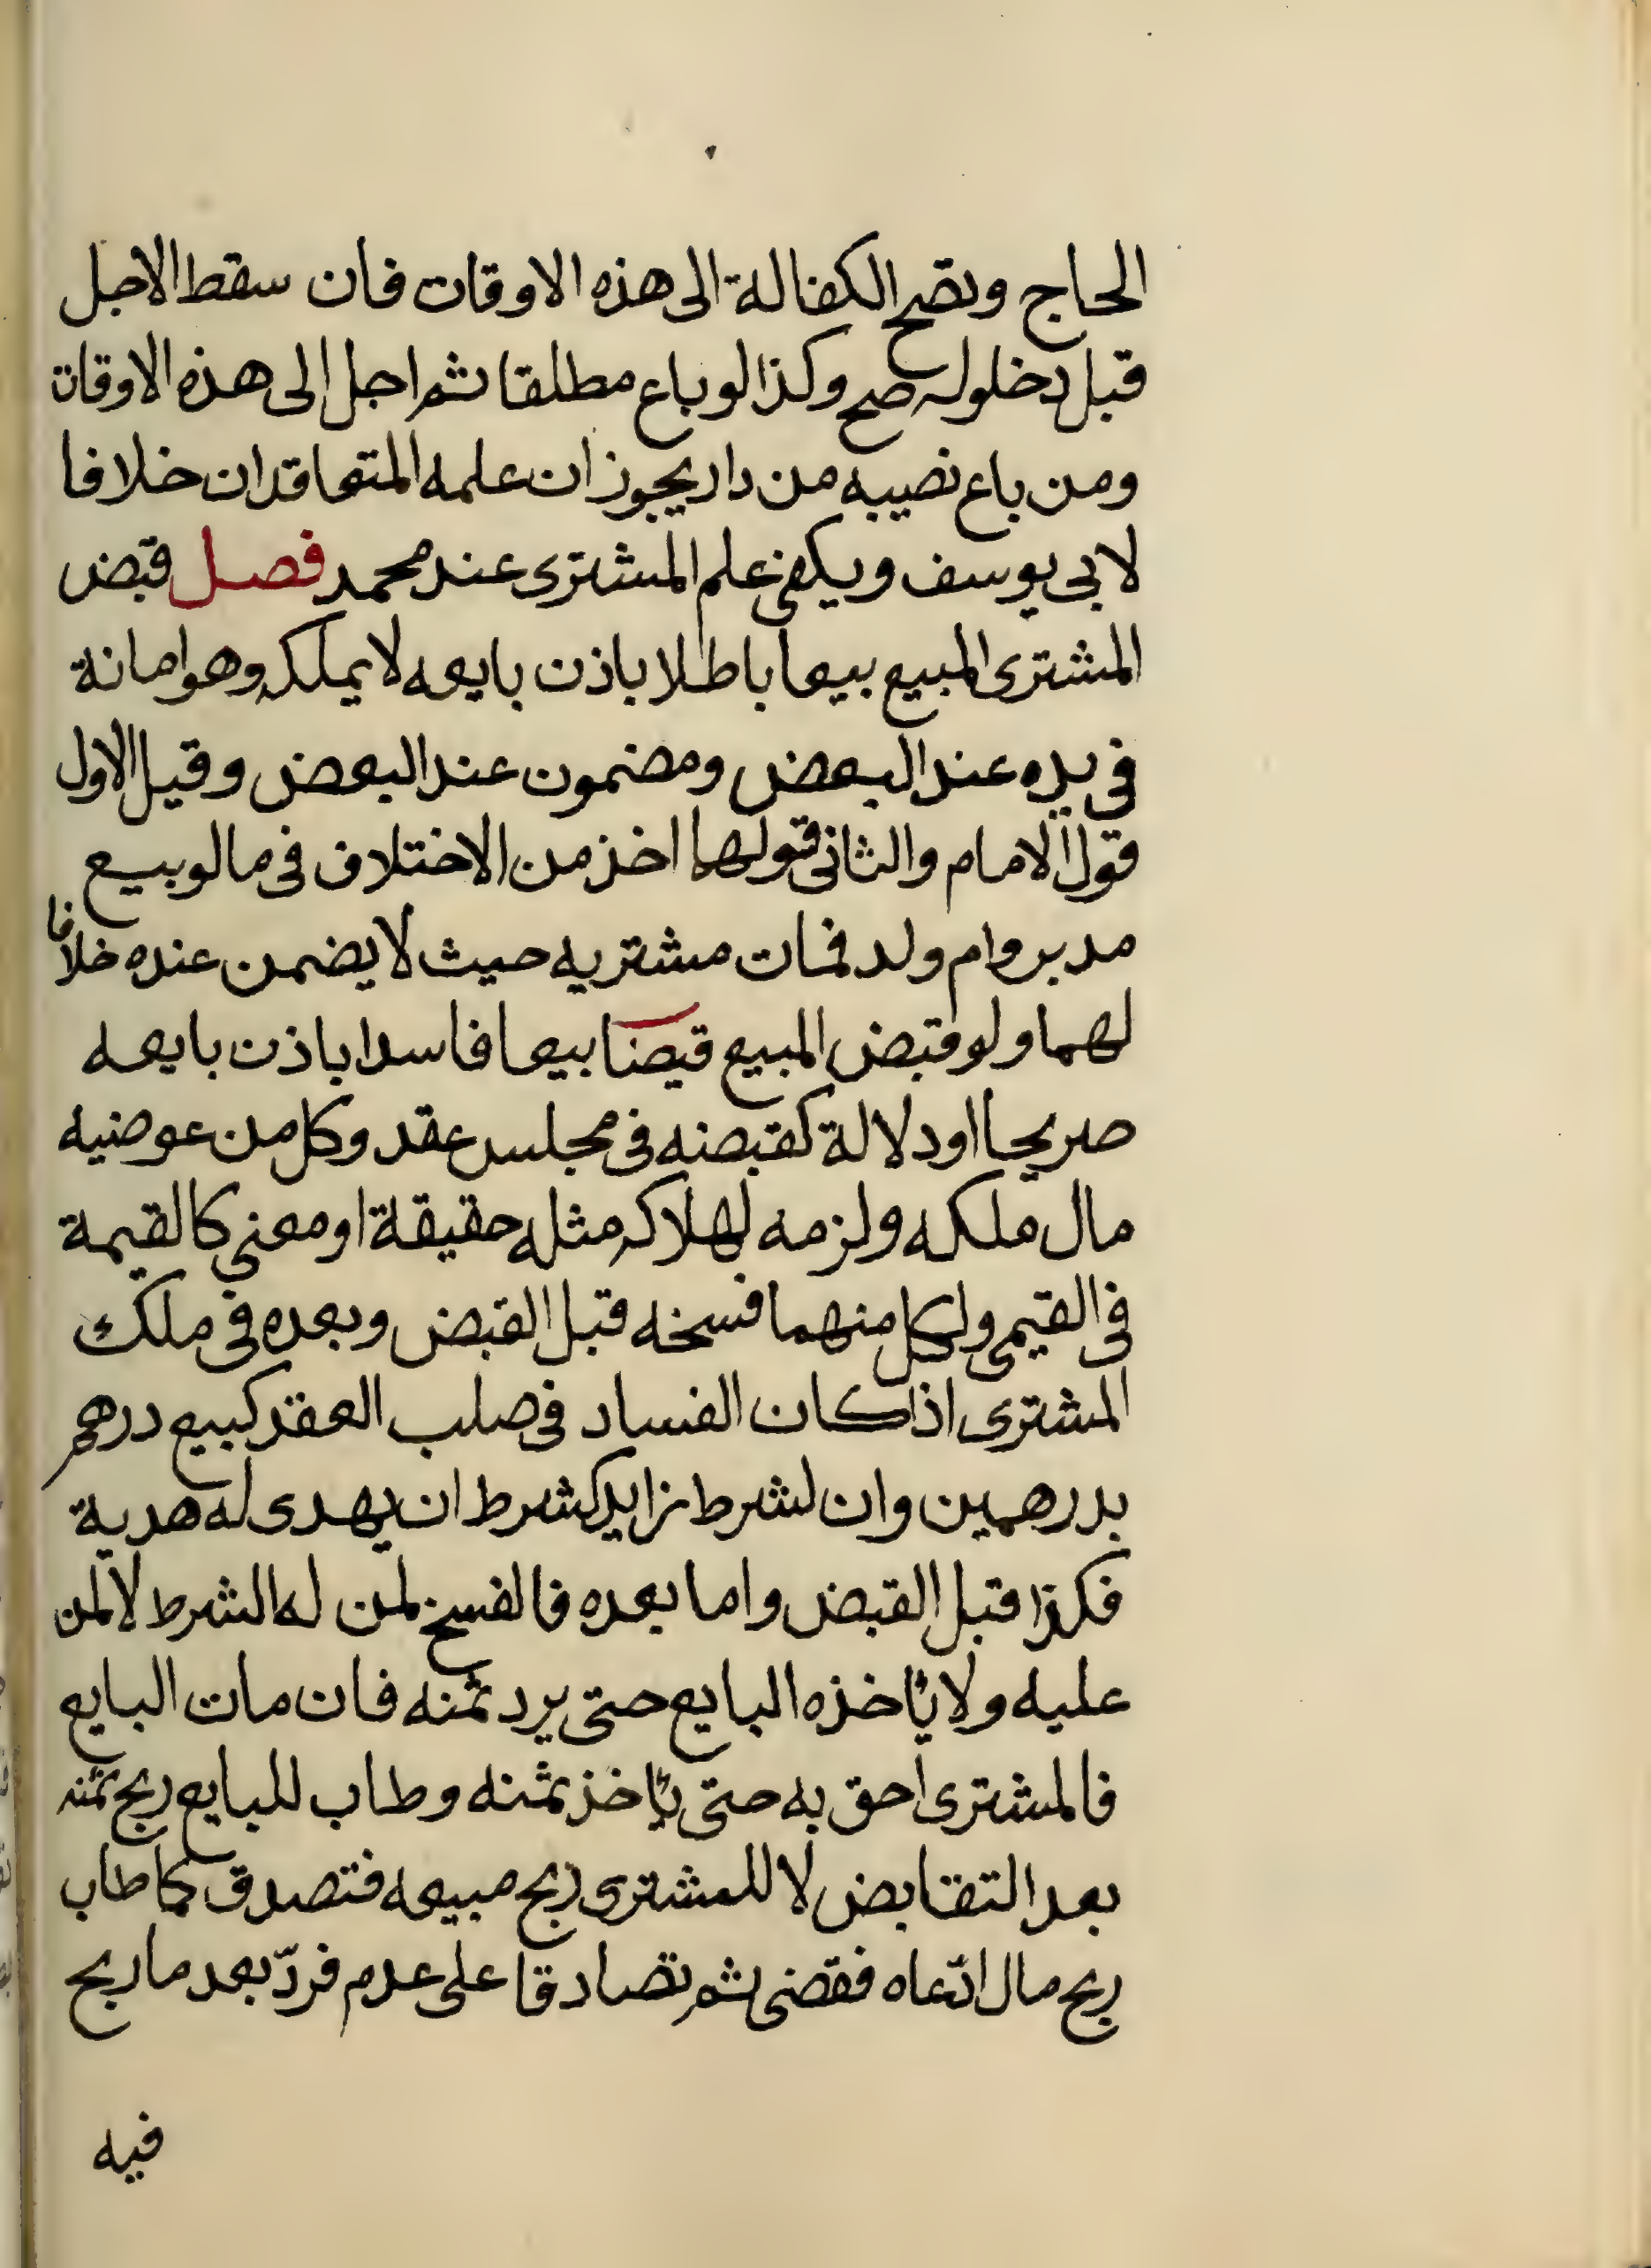 الحاج وتصح الكفالة الى هذه الاوقات فان سقط الاجل
قبل دخلوله صح وكذا لو باع مطلقا ثم اجل الى هذه الاوقات
ومن باع نصيبه من دار يجوز ان علمه المتعاقدان خلافا
لابى يوسف ويكفى علم المشترى عند محمد فصل قبض
المشترى المبيع بيعا باطلا باذن بايعه لا يملكه وهو امانة
فى يده عند البعض ومضمون عند البعض وقيل الاول
قول الامام والثانى قولهما اخذ من الاختلاف فى ما لو بيع
مدبر وام ولد فمات مشتريه حيث لا يضمن عنده خلافا
لهما ولو قبض المبيع قبضا بيعا فاسدا باذن بايعه
صريحا او دلالة كقبضه فى مجلس عقد وكل من عوضيه
مال ملكه ولزمه لهلاكه مثله حقيقة او معنى كالقيمة
فى القيمى ولكل منهما فسخه قبل القبض وبعده فى ملك
المشترى اذا كان الفساد فى صلب العقد كبيع درهم
بدرهمين وان لشرط زايد كشرط ان يهدى له هدية
فكذا قبل القبض واما بعده فالفسخ لمن له الشرط لا لمن
عليه ولا يأخذه البايع حتى يرد ثمنه فان مات البايع
فالمشترى احق به حتى يأخذ ثمنه وطاب للبايع ربح ثمنه
بعد التقابض لا للمشترى ربح مبيعه فتصدق كما طاب
ربح مال ادّعاه فقضى ثم تصادقا على عدم فردّ بعد ما ربح
فيه